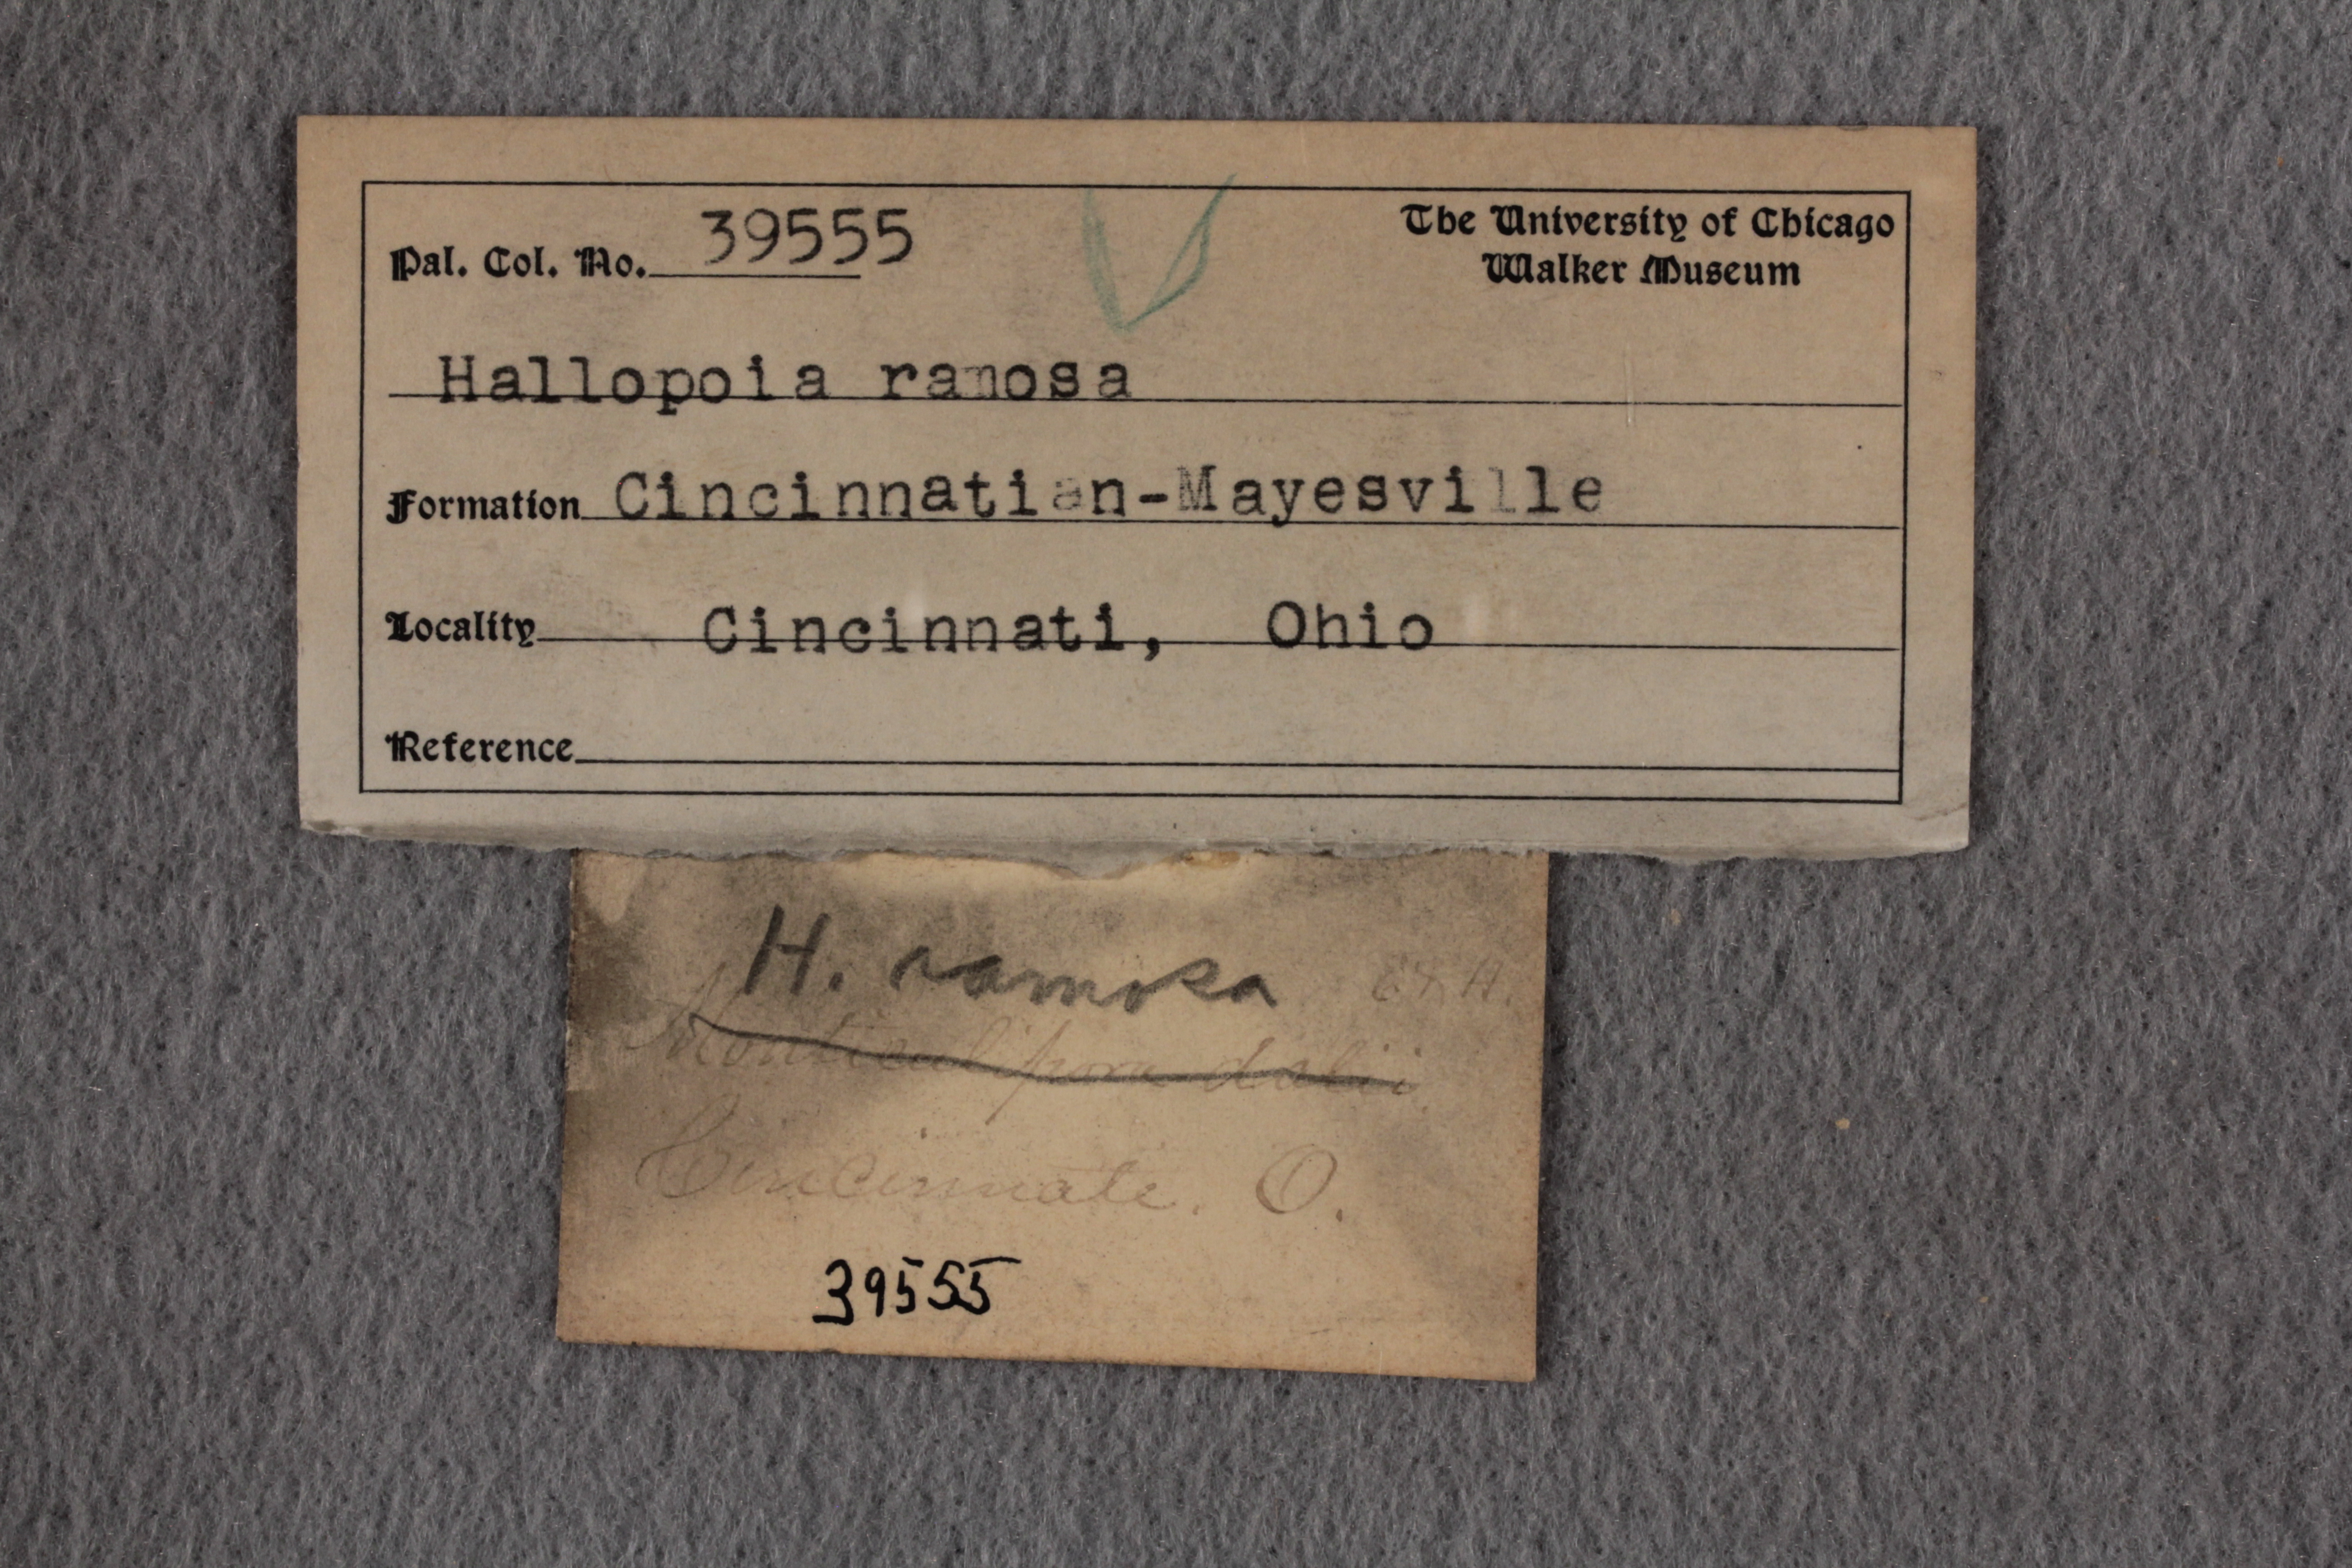 Pal. Col. No. 39555
The University of Chicago
Walker Museum
Hallopoia ramosa
Formation Cincinnatian-Mayesville
Locality Cincinnati, Ohio
Reference
H. ramosa
Monticulipora dalii
Cincinnati. O.
39555